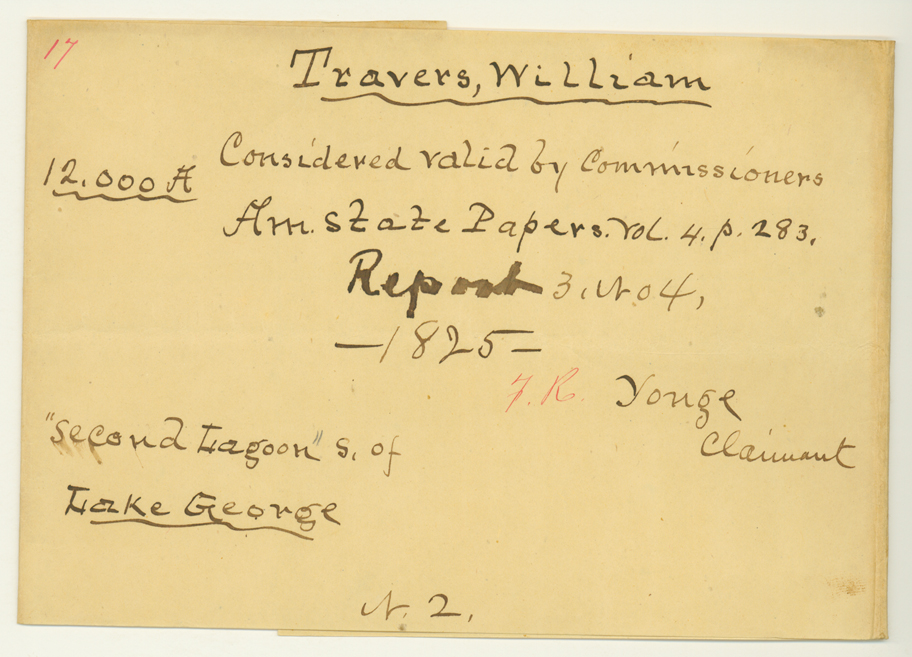 17
Travers, William
12.000 A
Considered valid by Commissioners
Am. State Papers. Vol. 4. p. 283.
Report 3. No 4,
—1825—
F. R. Yonge
Claimant
"Second Lagoon" S. of
Lake George
N. 2.